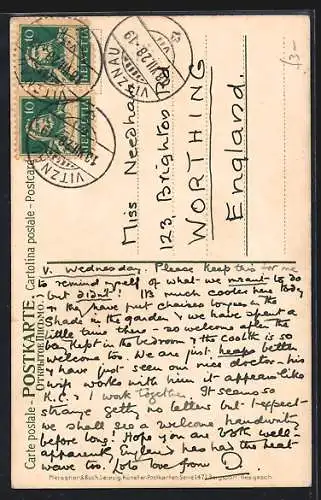 10
HELVETIA
10
HELVETIA
VITZNAU
VITZNAU
VITZNAU
13-
Miss Needham
123, Brighton Rd
WORTHING
England.
Carte postale - POSTKARTE - Cartolina postale - Postcard
V. Wednesday. Please keep this for me
to remind myself of what we meant to do
but didn't! It's much cooler here today
& they have put chaises longues in the
Shade in the garden & we have spent a
little time there - so welcome after the
kept in the bedroom & the coolth is so
welcome too. We are just heaps better
& have just seen our nice doctor - his
wife works with him it appears like
K.C. & I work together. It seems so
strange getting no letters but I expect
we shall see a welcome handwriting
before long. Hope you are both well -
apparently England has had the heat
wave too. lots love from D
Meissner & Buch, Leipzig. Künstler-Postkarten Serie